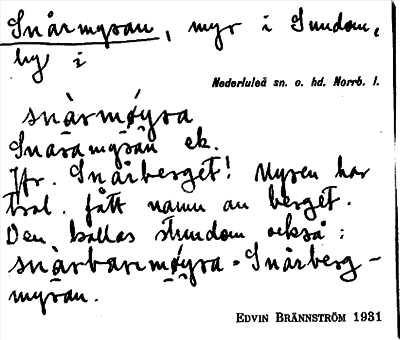 Snårmyran, myr i Sundom,
by i
Nederluleå sn. o. hd. Norrb. l.
snàrmøyra
Snåramyran ek.
Jfr. Snårberget! Myren har
trol. fått namn av berget.
Den kallas stundom också:
snàrbærmøyra - Snårberg-
myran.
EDVIN BRÄNNSTRÖM 1931